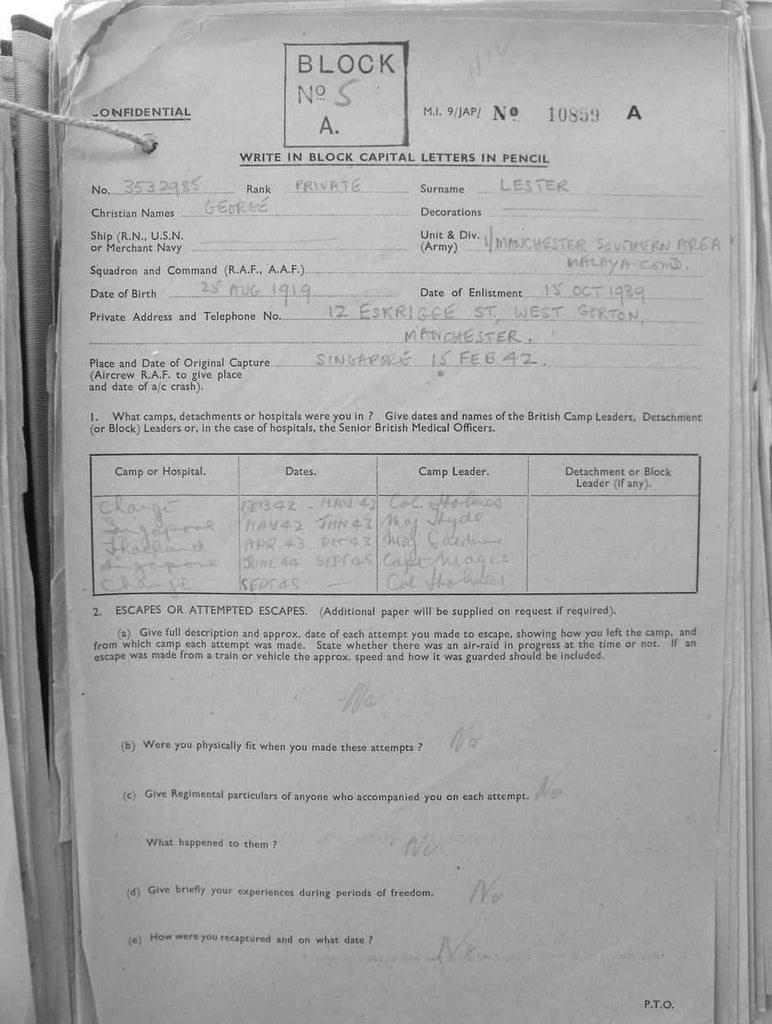 BLOCK
Nº 5
A.
CONFIDENTIAL
M.I. 9/JAP/ Nº 10859 A
WRITE IN BLOCK CAPITAL LETTERS IN PENCIL
No. 3532985 Rank PRIVATE Surname LESTER
Christian Names GEORGE Decorations
Ship (R.N., U.S.N. or Merchant Navy
Unit & Div. (Army) 1/MANCHESTER SOUTHERN AREA
MALAYA COMD.
Squadron and Command (R.A.F., A.A.F.)
Date of Birth 25 AUG 1919 Date of Enlistment 15 OCT 1939
Private Address and Telephone No. 12 ESKRIGGE ST, WEST GORTON,
MANCHESTER.
Place and Date of Original Capture SINGAPORE 15 FEB 42.
(Aircrew R.A.F. to give place
and date of a/c crash).
1. What camps, detachments or hospitals were you in ? Give dates and names of the British Camp Leaders, Detachment
(or Block) Leaders or, in the case of hospitals, the Senior British Medical Officers.
Camp or Hospital. Dates. Camp Leader. Detachment or Block
Leader (if any).
Changi FEB 42 - MAY 42 Col. Holmes
Singapore MAY 42 JAN 43 Maj Hyde
Thailand APR. 43 DEC 43 Maj
Singapore JUNE 44 SEPT 45 Capt
Changi SEPT 45 — Col Holmes
2. ESCAPES OR ATTEMPTED ESCAPES. (Additional paper will be supplied on request if required).
(a) Give full description and approx. date of each attempt you made to escape, showing how you left the camp, and
from which camp each attempt was made. State whether there was an air-raid in progress at the time or not. If an
escape was made from a train or vehicle the approx. speed and how it was guarded should be included.
No
(b) Were you physically fit when you made these attempts ? No
(c) Give Regimental particulars of anyone who accompanied you on each attempt. No
What happened to them ? No
(d) Give briefly your experiences during periods of freedom. No
(e) How were you recaptured and on what date ? No
P.T.O.